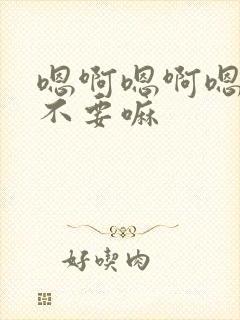 嗯啊嗯啊嗯
不要嘛
好喫肉